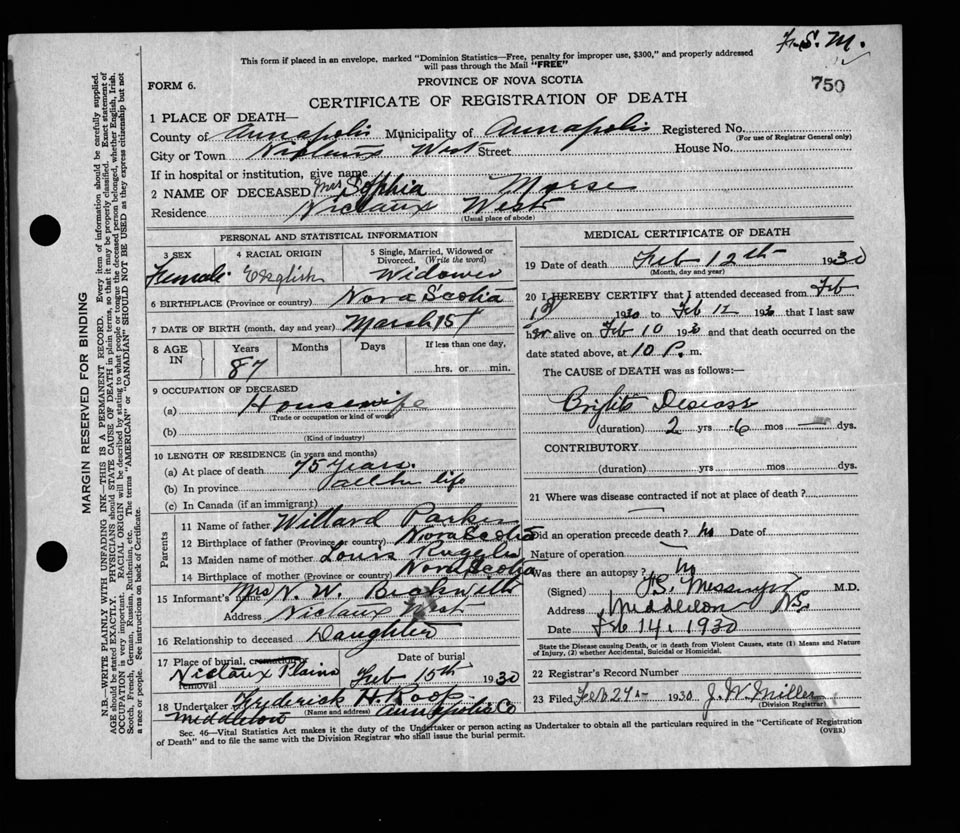 Fr. S. M.
This form if placed in an envelope, marked "Dominion Statistics—Free, penalty for improper use, $300," and properly addressed
will pass through the Mail "FREE"
750
FORM 6.
PROVINCE OF NOVA SCOTIA
CERTIFICATE OF REGISTRATION OF DEATH
1 PLACE OF DEATH—
County of Annapolis Municipality of Annapolis Registered No.
(For use of Registrar General only)
City or Town Nictaux West Street House No.
If in hospital or institution, give name
2 NAME OF DECEASED Mrs Sophia Morse
Residence Nictaux West
(Usual place of abode)
PERSONAL AND STATISTICAL INFORMATION
3 SEX Female
4 RACIAL ORIGIN English
5 Single, Married, Widowed or
Divorced. (Write the word)
Widower
6 BIRTHPLACE (Province or country) Nova Scotia
7 DATE OF BIRTH (month, day and year) March 1st
8 AGE IN Years 87 Months Days If less than one day,
hrs. or min.
9 OCCUPATION OF DECEASED
(a) Housewife
(Trade or occupation or kind of work)
(b)
(Kind of industry)
10 LENGTH OF RESIDENCE (in years and months)
(a) At place of death 75 years.
(b) In province all her life
(c) In Canada (if an immigrant)
Parents
11 Name of father Willard Parker
12 Birthplace of father (Province or country) Nova Scotia
13 Maiden name of mother Louis Ruggles
14 Birthplace of mother (Province or country) Nova Scotia
15 Informant's name Mrs N. W. Beckwith
Address Nictaux West
16 Relationship to deceased Daughter
17 Place of burial, cremation, removal Nictaux Plains
Date of burial Feb 15th 1930
18 Undertaker Frederick H Roop
(Name and address)
Middleton Annapolis Co
MEDICAL CERTIFICATE OF DEATH
19 Date of death Feb 12th 1930
(Month, day and year)
20 I HEREBY CERTIFY that I attended deceased from Feb
1930 to Feb 12 1930 that I last saw
her alive on Feb 10 1930 and that death occurred on the
date stated above, at 10 P. m.
The CAUSE of DEATH was as follows:—
Brights Disease
(duration) 2 yrs 6 mos — dys.
CONTRIBUTORY
(duration) yrs mos dys.
21 Where was disease contracted if not at place of death?
Did an operation precede death? No Date of
Nature of operation
Was there an autopsy? No
(Signed) Messenger M.D.
Address Middleton N.S.
Date Feb 14, 1930
State the Disease causing Death, or in death from Violent Causes, state (1) Means and Nature
of Injury, (2) whether Accidental, Suicidal or Homicidal.
22 Registrar's Record Number
23 Filed Feb 24 1930 J. W. Miller
(Division Registrar)
Sec. 46—Vital Statistics Act makes it the duty of the Undertaker or person acting as Undertaker to obtain all the particulars required in the "Certificate of Registration
of Death" and to file the same with the Division Registrar who shall issue the burial permit.
(OVER)
MARGIN RESERVED FOR BINDING
N.B.—WRITE PLAINLY WITH UNFADING INK—THIS IS A PERMANENT RECORD. Every item of information should be carefully supplied.
AGE should be stated EXACTLY. PHYSICIANS should STATE CAUSE OF DEATH in plain terms, so that it may be properly classified. Exact statement of
OCCUPATION is very important. RACIAL ORIGIN will be described by stating to what people or tongue the deceased person belonged, whether English, Irish,
Scotch, French, German, Russian, Ruthenian, etc. The terms "AMERICAN" or "CANADIAN" SHOULD NOT BE USED as they express citizenship but not
a race or people. See instructions on back of Certificate.